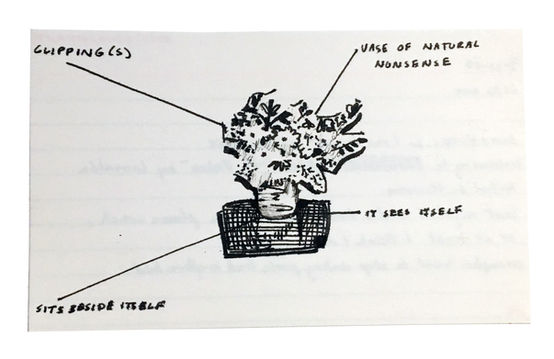 CLIPPING(S)
VASE OF NATURAL
NONSENSE
IT SEES ITSELF
SITS BESIDE ITSELF